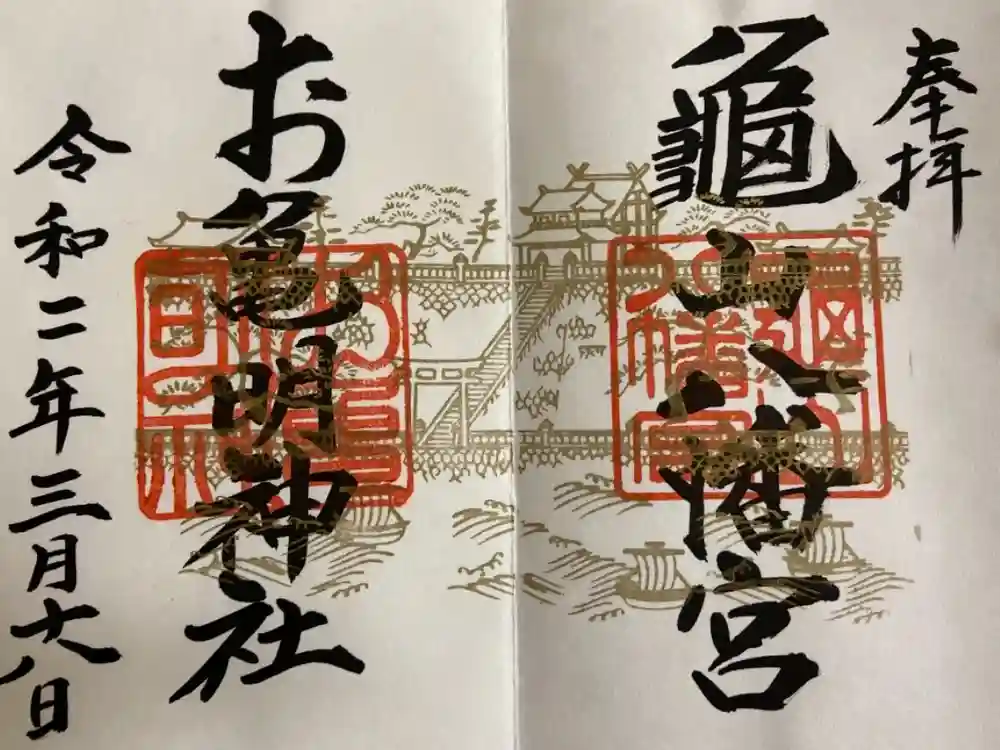 奉拝
龜山八幡宮
お亀明神社
令和二年三月十八日